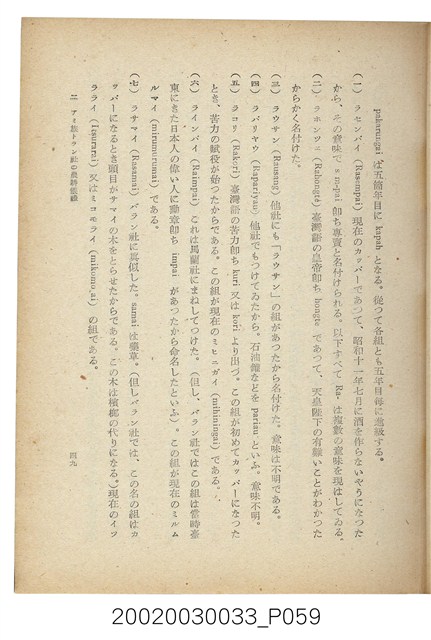 pakarungai は五箇年目に kapah となる。從つて各組とも五年目毎に進級する。
(一) ラセンパイ (Rasempai) 現在のカッパーであつて、昭和十一年七月に酒を作らないやうになつた
から、その意味で sen-pai 卽ち專賣と名付けられる。以下すべて Ra- は複數の意味を現はしてゐる。
(二) ラホンツェ (Rahongte) 臺灣語の皇帝卽ち hongte であつて、天皇陛下の有難いことがわかつた
からかく名付けた。
(三) ラウサン (Rausang) 他社にも「ラウサン」の組があつたから名付けた。意味は不明である。
(四) ラパリヤウ (Rapariyau) 他社でもつけてゐたから。石油罐などを pariau といふ。意味不明。
(五) ラコリ (Rakori) 臺灣語の苦力卽ち kuri 又は kori より出づ。この組が初めてカッパーになつた
とき、苦力の賦役が始つたからである。この組が現在のミヒニガイ (mihiningai) である。
(六) ラインパイ (Raimpai) これは馬蘭社にまねしてつけた。(但し、バラン社ではこの組は當時臺
東にきた日本人の偉い人に勳章卽ち impai があつたから命名したといふ)。この組が現在のミルム
ルマイ (mirumurumai) である。
(七) ラサマイ (Rasamai) バラン社に眞似した。samai は藥草。(但しバラン社では、この名の組はカ
ッパーになるとき頭目がサマイの木をとらせたからである。この木は檳榔の代りになる。)現在のイツ
ラライ (Itsurarai) 又はミコモライ (mikomorai) の組である。
二 アミ族トラン社の長幼組織
四九
20020030033_P059